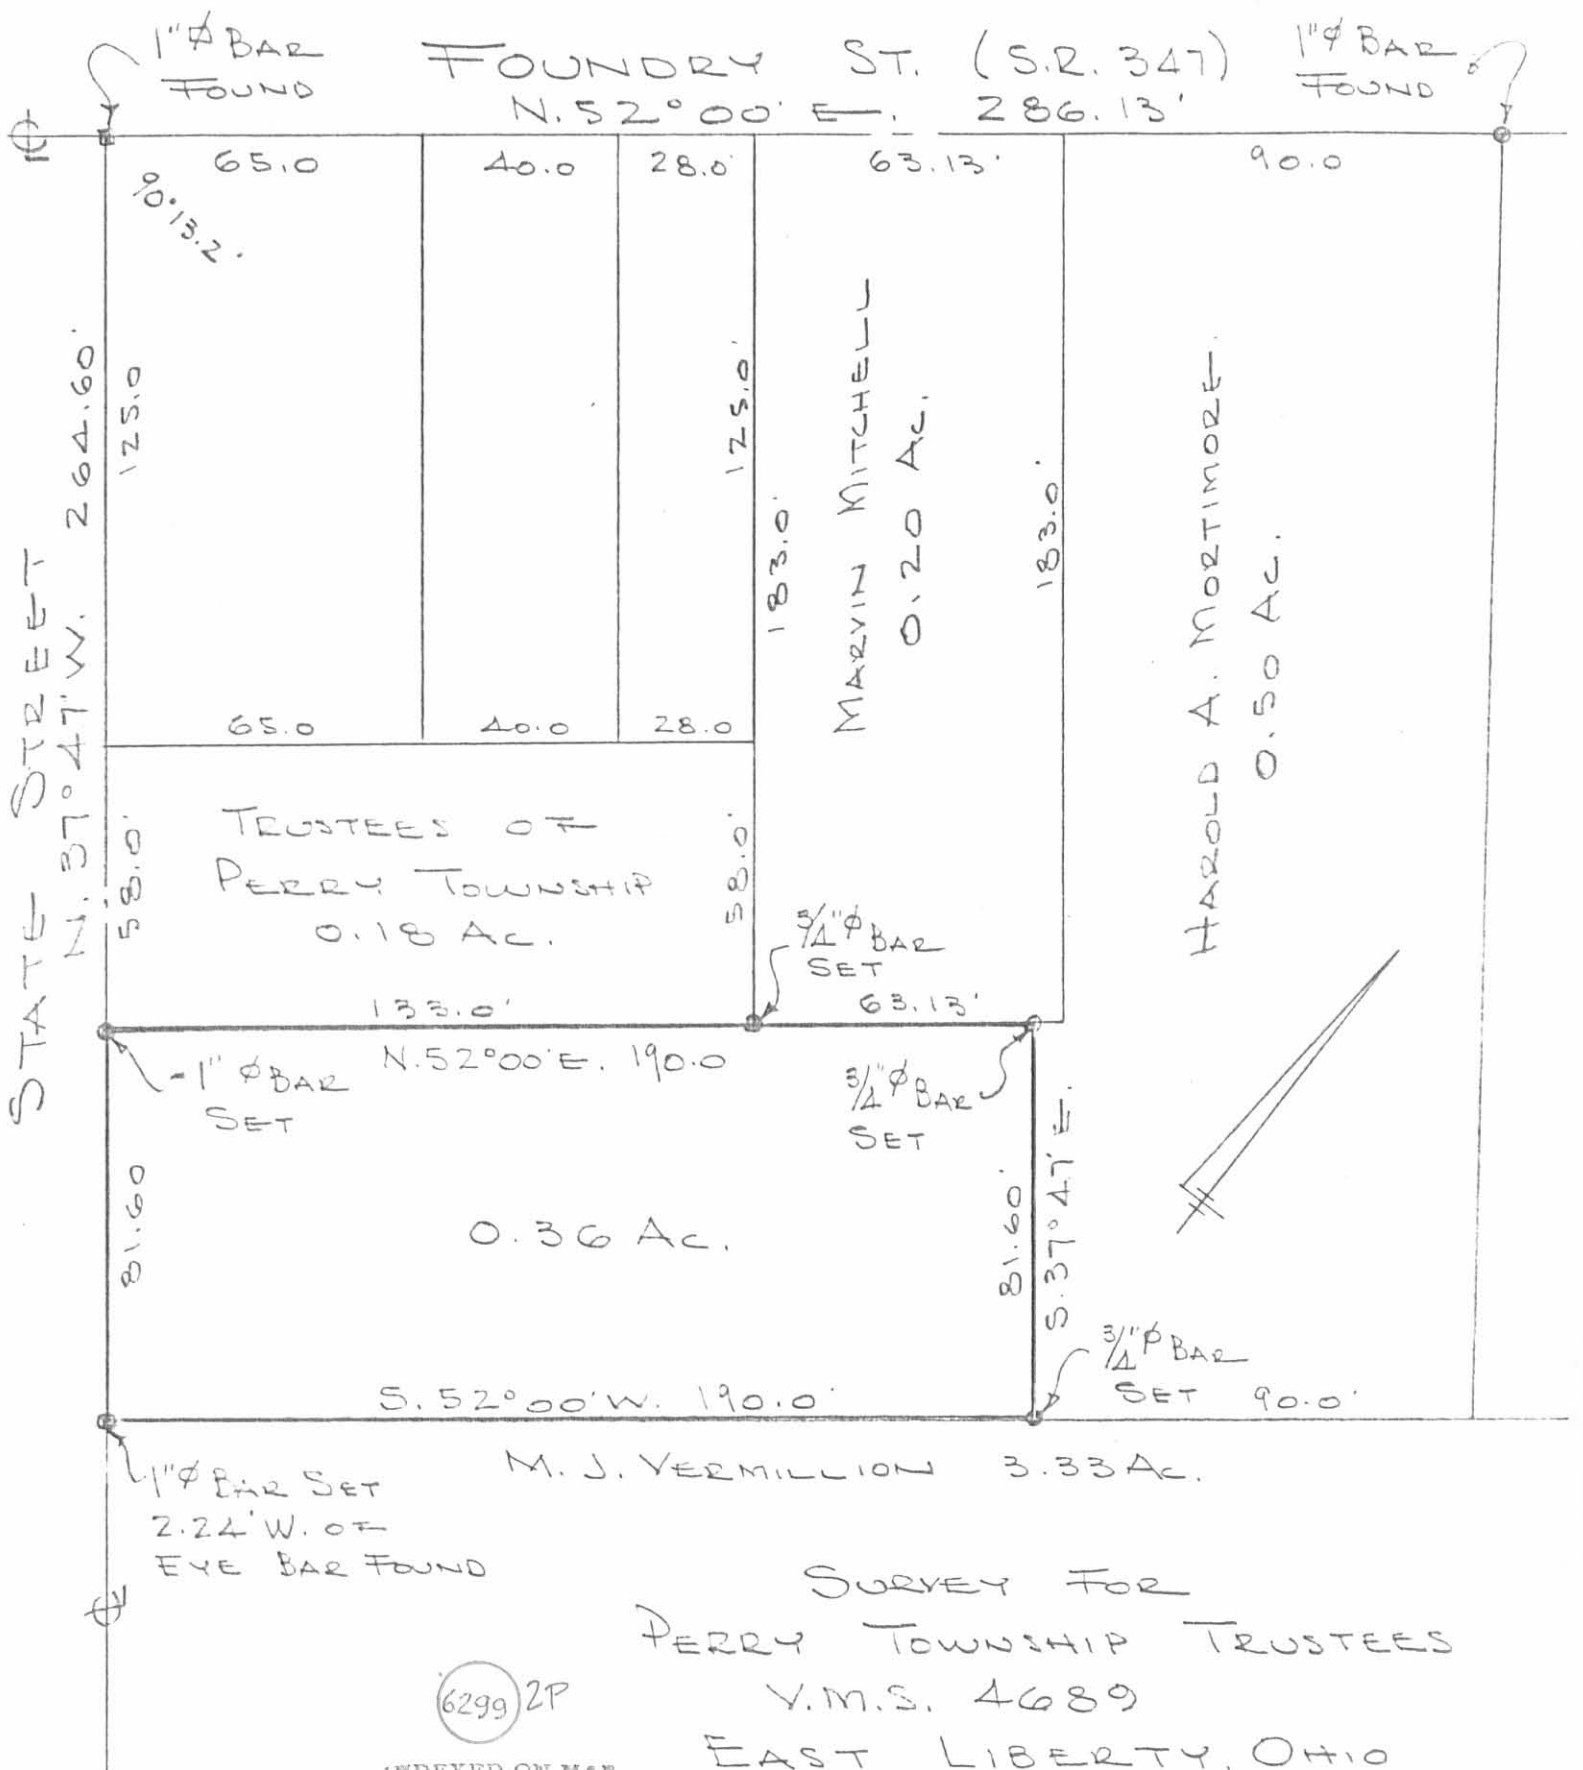 1"ø BAR
FOUND
FOUNDRY ST. (S.R. 347)
N. 52° 00' E. 286.13'
1"ø BAR
FOUND
65.0
40.0
28.0'
63.13'
90.0
90°13.2'
STATE STREET
N. 37° 47' W. 264.60'
125.0
125.0'
183.0'
MARVIN MITCHELL
0.20 AC.
183.0'
HAROLD A. MORTIMORE
0.50 AC.
65.0
40.0
28.0
58.0'
TRUSTEES OF
PERRY TOWNSHIP
0.18 AC.
58.0'
3/4"ø BAR
SET
133.0'
63.13'
N. 52°00' E. 190.0
1" ø BAR
SET
3/4"ø BAR
SET
81.60
0.36 AC.
81.60'
S. 37° 47' E.
3/4"ø BAR
SET
90.0'
S. 52° 00' W. 190.0'
M. J. VERMILLION 3.33 AC.
1"ø BAR SET
2.24' W. OF
EYE BAR FOUND
SURVEY FOR
PERRY TOWNSHIP TRUSTEES
V.M.S. 4689
EAST LIBERTY, OHIO
6299 2P
INDEXED ON MAP